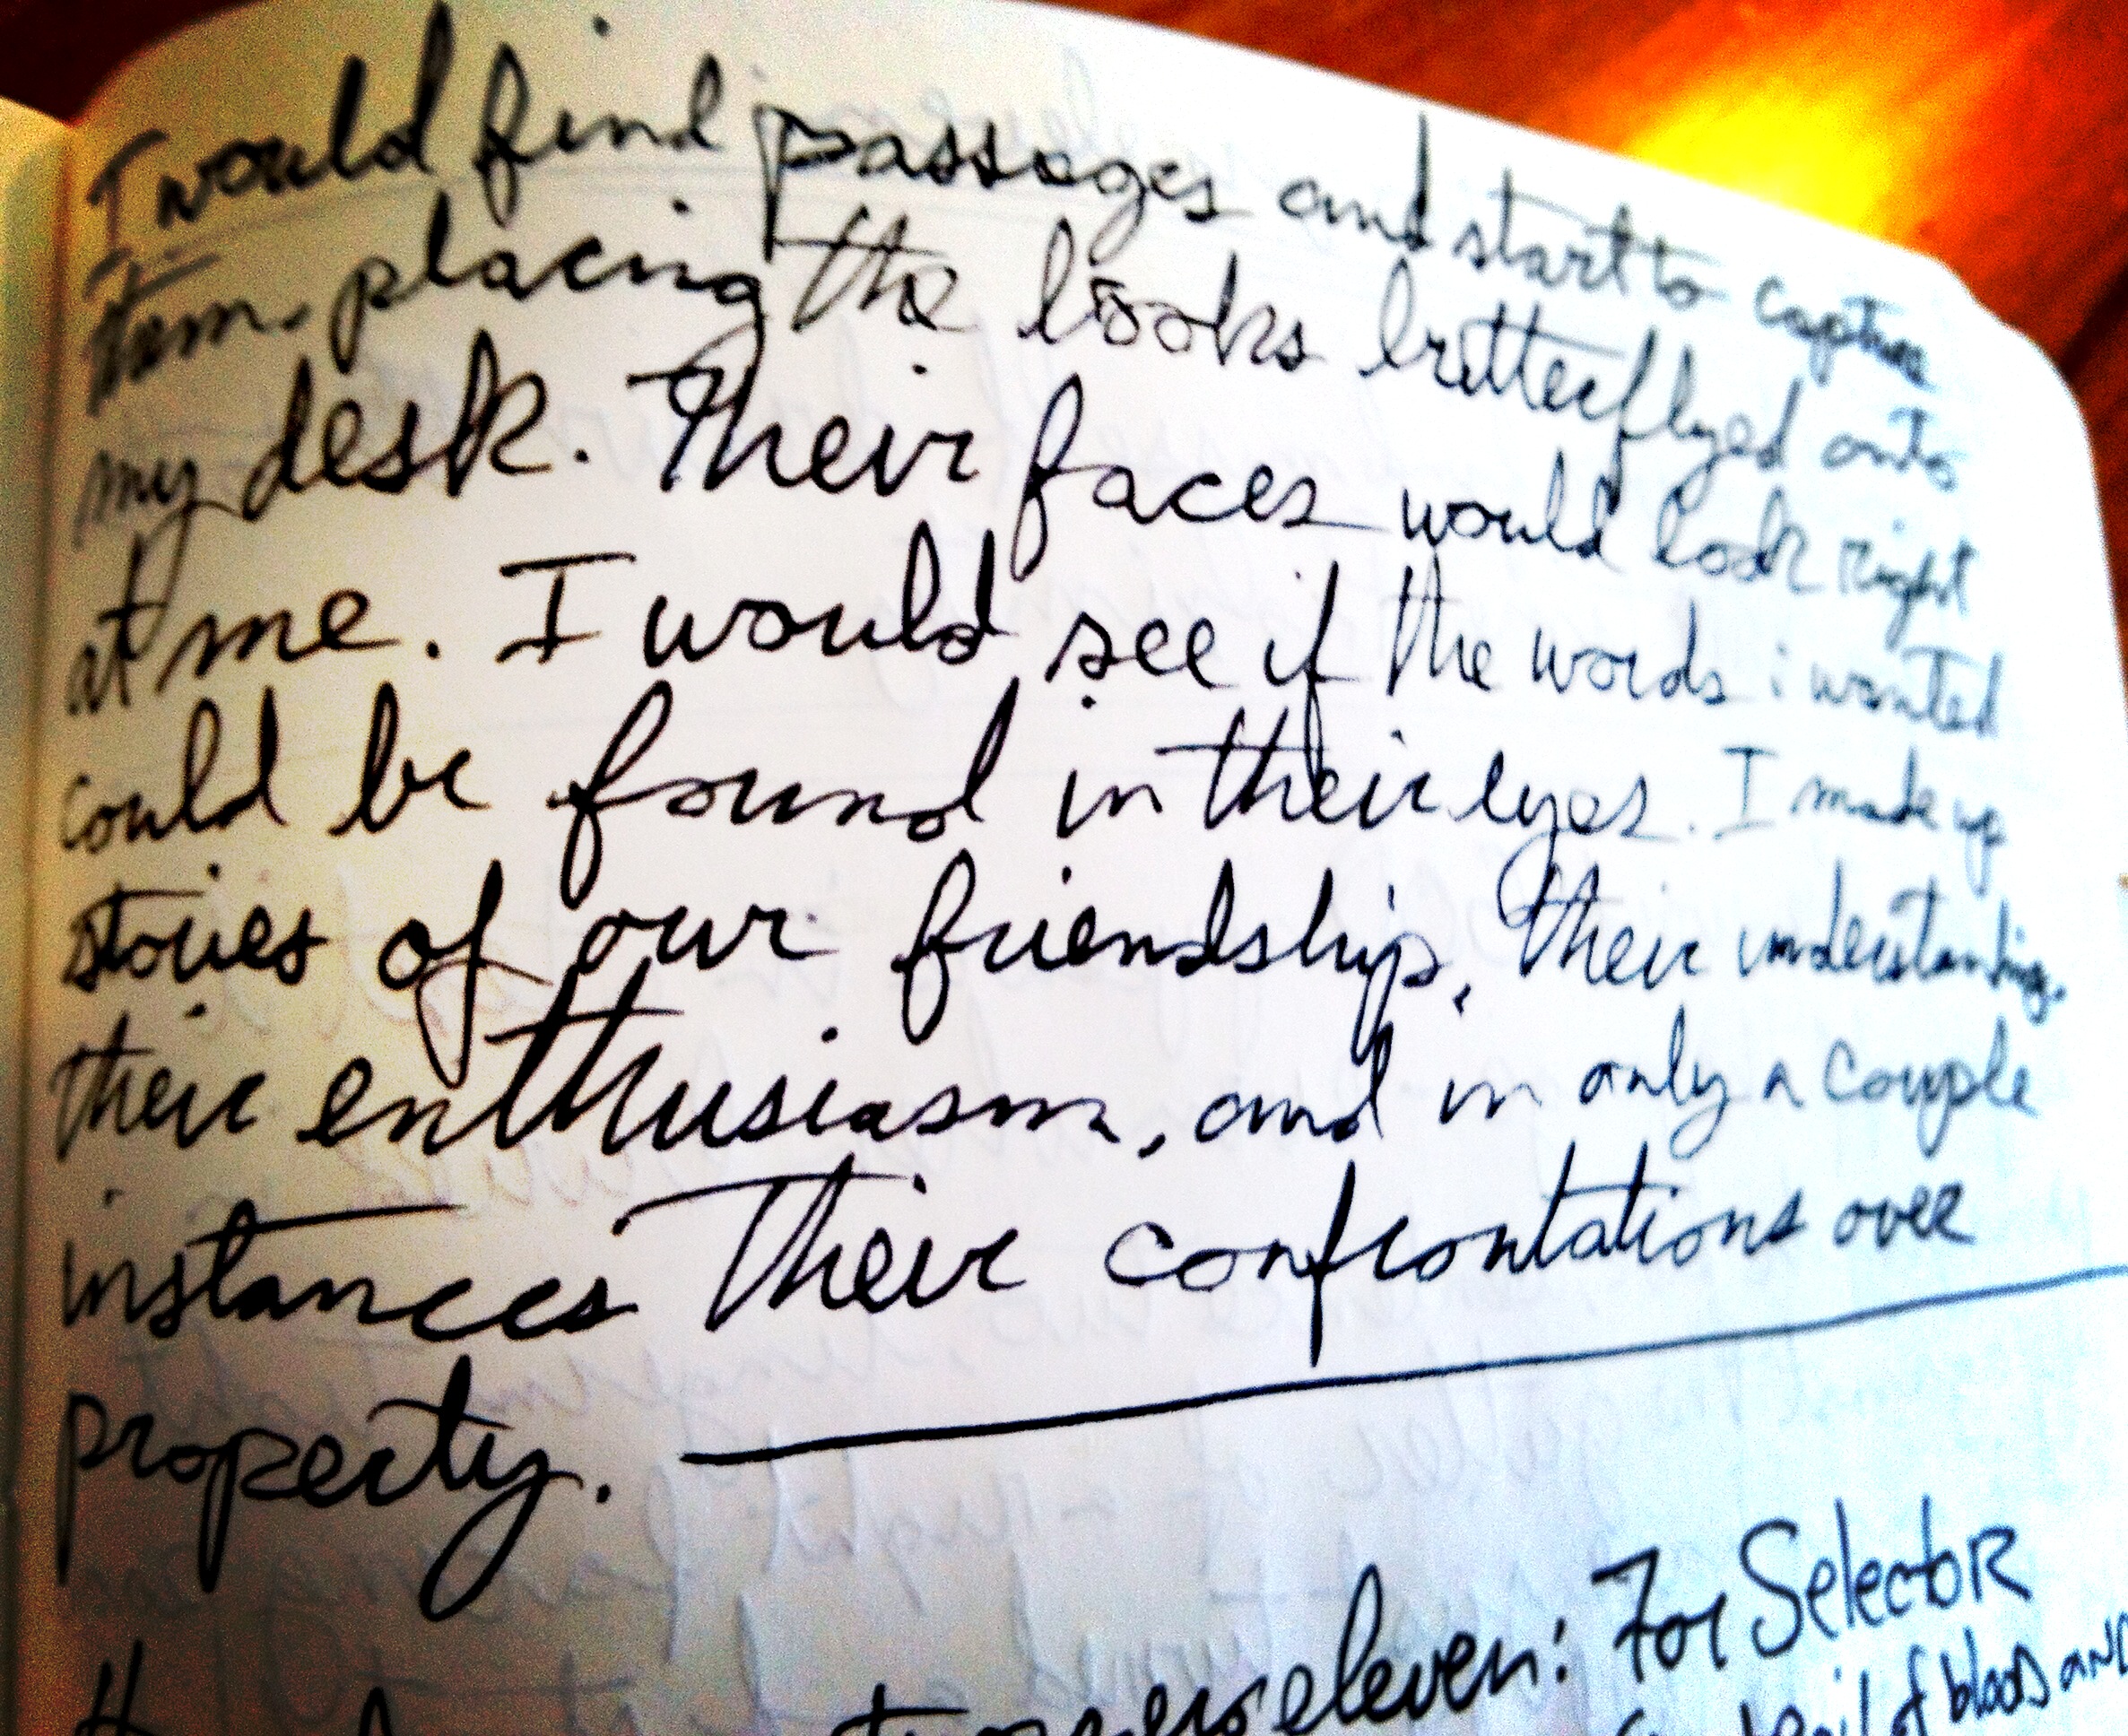 I would find passages and start to capture
them, placing the books butterflyed onto
my desk. Their faces would look right
at me. I would see if the words i wanted
could be found in their eyes. I make up
stories of our friendship, their understanding,
their enthusiasm, and in only a couple
instances their confrontations over
property.
eleven: For Selector
of blood and